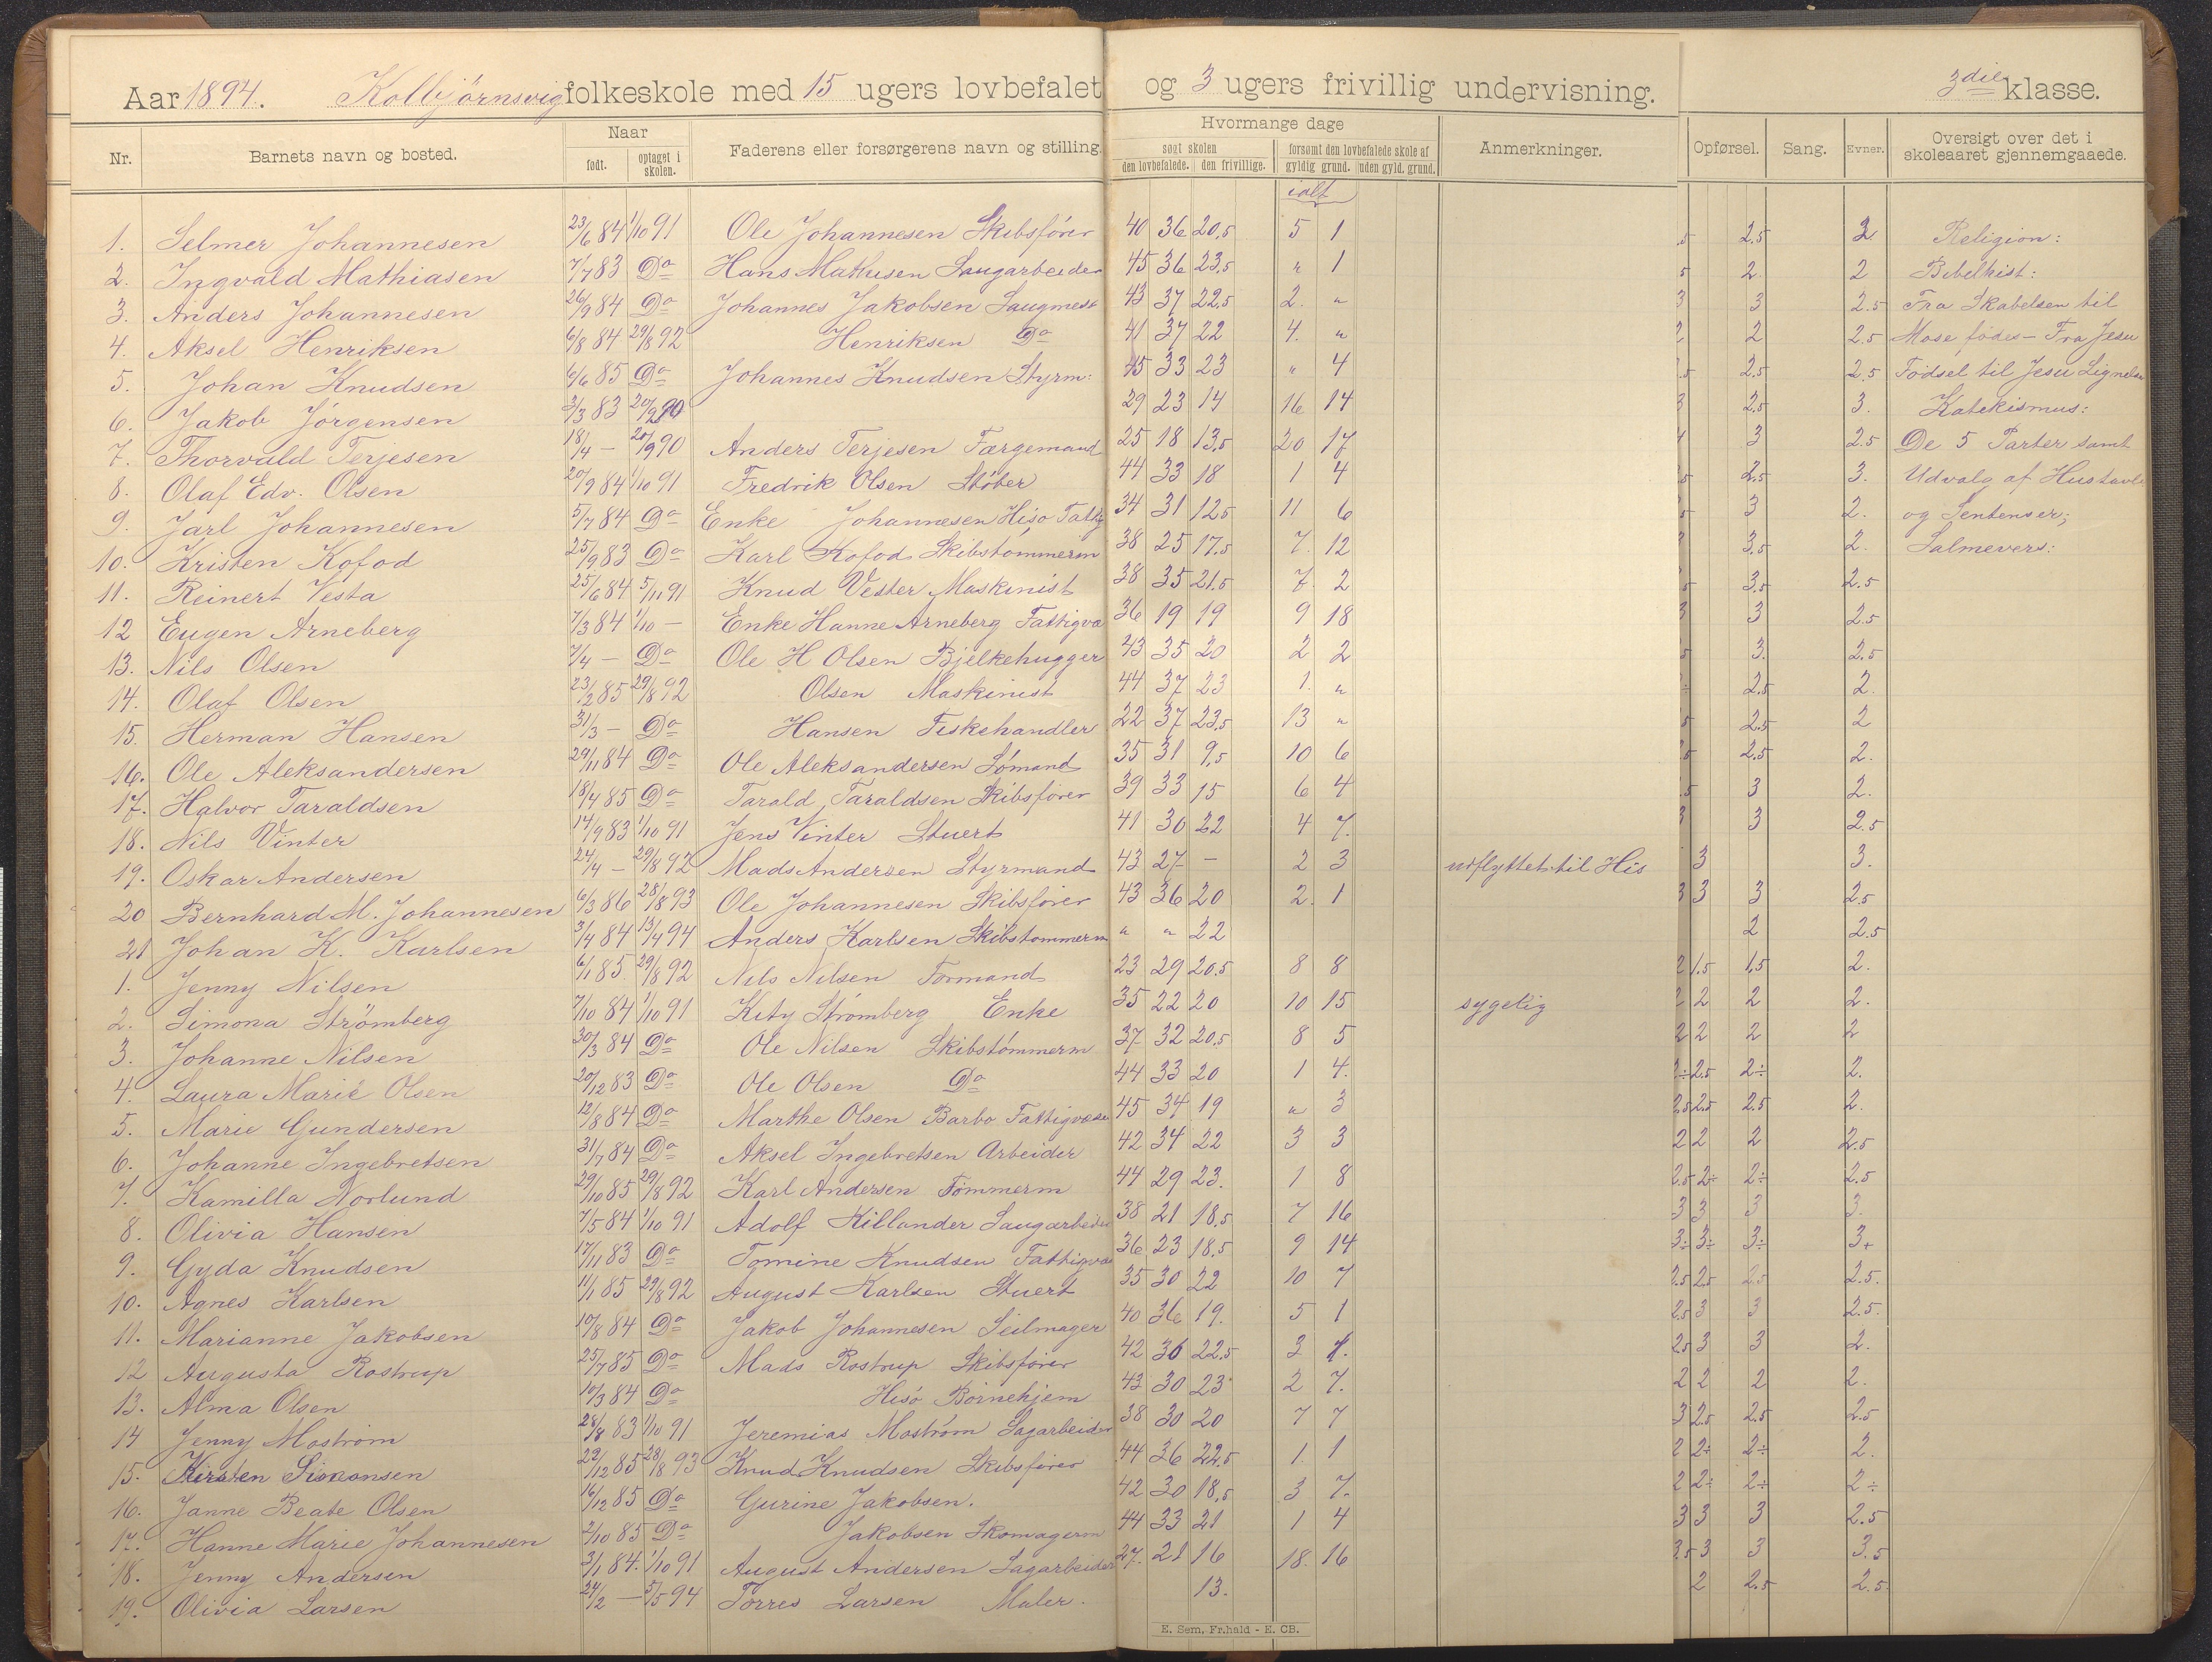 Aar 1894. Kolbjörnsvig folkeskole med 15 ugers lovbefalet og 3 ugers frivillig undervisning. 3die klasse.
Nr. Barnets navn og bosted. Naar født. optaget i skolen. Faderens eller forsørgerens navn og stilling. Hvormange dage søgt skolen den lovbefalede. den frivillige. forsømt den lovbefalede skole af gyldig grund. uden gyld. grund. Anmerkninger. Opførsel. Sang. Evner. Oversigt over det i skoleaaret gjennemgaaede.
ialt
1. Selmer Johannesen 23/6 84 1/10 91 Ole Johannesen Skibsfører 40 36 20,5 5 1 2,5 2 Religion:
2. Ingvald Mathiasen 7/7 83 Do Hans Mathisen Saugarbeider 45 36 23,5 " 1 2. 2 Bibelhist:
3. Anders Johannesen 26/9 84 Do Johannes Jakobsen Saugmest 43 37 22,5 2. " 3 3 2.5 Fra Skabelsen til
4. Aksel Henriksen 6/8 84 29/8 92 Henriksen Do 41 37 22 4. " 2 2 2.5 Mose födes - Fra Jesu
5. Johan Knudsen 6/6 85 Do Johannes Knudsen Styrm: 45 33 23 " 4 2,5 2,5 Födsel til Jesu Lignelser
6. Jakob Jörgensen 3/3 83 20/9 90 29 23 14 16 14 3 2,5 3. Katekismus:
7. Thorvald Terjesen 18/4 - 20/9 90 Anders Terjesen Færgemand 25 18 13,5 20 17 3 2.5 De 5 Parter samt
8. Olaf Edv. Olsen 20/9 84 1/10 91 Fredrik Olsen Støber 44 33 18 1 4 2,5 3. Udvalg af Hustavle
9. Jarl Johannesen 5/7 84 Do Enke Johannesen Hisø Fattig 34 31 12,5 11 6 3 2. og Sentenser;
10. Kristen Kofod 25/9 83 Do Karl Kofod Skibstømmerm 38 25 17.5 7. 12 3,5 2. Salmevers:
11. Reinert Vesta 25/6 84 5/11 91 Knud Vester Maskinist 38 35 21.5 7. 2 3,5 2.5
12 Eugen Arneberg 7/3 84 1/10 - Enke Hanne Arneberg Fattigvæ 36 19 19 9 18 3 3 2.5
13. Nils Olsen 7/4 - Do Ole H Olsen Bjelkehugger 43 35 20 2 2 3. 2.5
14. Olaf Olsen 23/2 85 29/8 92 Olsen Maskinist 44 37 23 1. " 2,5 2.
15. Herman Hansen 31/3 - Do Hansen Fiskehandler 22 37 23,5 13 " 2.5 2
16. Ole Aleksandersen 29/11 84 Do Ole Aleksandersen Sömand 35 31 9,5 10 6 2,5 2.
17. Halvor Taraldsen 18/4 85 Do Tarald Taraldsen Skibsfører 39 33 15 6 4 3 2.
18. Nils Vinter 14/9 83 1/10 91 Jens Vinter Stuert 41 30 22 4 7. 3 3 2.5
19. Oskar Andersen 24/4 - 29/8 92 Mads Andersen Styrmand 43 27 - 2 3 udflyttet til His 3 3.
20 Bernhard M. Johannesen 6/3 86 28/8 93 Ole Johannesen Skibsfører 43 36 20 2. 1 3 3 3 2.5
21 Johan K. Karlsen 3/4 84 13/4 94 Anders Karlsen Skibstømmerm " " 22 2 2.5
1. Jenny Nilsen 6/1 85. 29/8 92 Nils Nilsen Formand 23 29 20.5 8 8 2 1.5 1,5 2.
2. Simona Strömberg 7/10 84 1/10 91 Kity Strømberg Enke 35 22 20 10 15 sygelig 2 2 2 2.
3. Johanne Nilsen 30/3 84 Do Ole Nilsen Skibstømmerm 37 32 20.5 8 5 2 2 2 2
4. Laura Marie Olsen 20/12 83 Do Ole Olsen Do 44 33 20 1 4. 2÷ 2.5 2÷ 2.
5. Marie Gundersen 12/8 84 Do Marthe Olsen Barbo Fattigvæsen 45 34 19 " 3 2.5 2.5 2.5 2.
6. Johanne Ingebretsen 31/7 84 Do Aksel Ingebretsen Arbeider 42 34 22 3 3 2 2 2 2.5
7. Kamilla Norlund 29/10 85 29/8 92 Karl Andersen Tømmerm 44 29 23. 1 8 2.5 2÷ 2÷ 2.5
8. Olivia Hansen 7/5 84 1/10 91 Adolf Killander Saugarbeider 38 21 18,5 7 16 3 3 3 3.
9. Gyda Knudsen 17/11 83 Do Tomine Knudsen Fattigvæ 36 23 18.5 9 14 3÷ 3÷ 3÷ 3+
10. Agnes Karlsen 11/1 85 29/8 92 August Karlsen Stuert 35 30 22 10 7 2.5 2.5 2.5 2.5.
11. Marianne Jakobsen 10/8 84 Do Jakob Johannesen Seilmager 40 36 19. 5 1 2.5 3 3 2.5.
12 Augusta Rostrup 25/7 85 Do Mads Rostrup Skibsfører 42 36 22,5 3 1. 2.5 3 3 2.
13. Alma Olsen 10/3 84 Do Hisø Börnehjem 43 30 23 2 7. 2 2 2 2.
14 Jenny Moström 28/8 83 1/10 91 Jeremias Mostrøm Sagarbeider 38 30 20 7 7 3 2.5 2.5 2.5
15. Kirsten Simonsen 29/12 85 28/8 93 Knud Knudsen Skibsfører 44 36 22.5 1. 1 2 2÷ 2÷ 2.
16. Janne Beate Olsen 16/12 85 Do Gurine Jakobsen. 42 30 18,5 3 7. 2 2÷ 2÷ 2÷
17. Hanne Marie Johannesen 2/10 85 Do Jakobsen Skomagerm 44 33 21 1 4 3 3 3 2.5
18. Jenny Andersen 3/1 84. 1/10 91 August Andersen Sagarbeider 27. 21 16 18. 16 3.5 3 3 3.5
19. Olivia Larsen 24/2 - 5/5 94 Torres Larsen Maler. 13. 2 2.5 2.5
E. Sem, Fr.hald - E. CB.